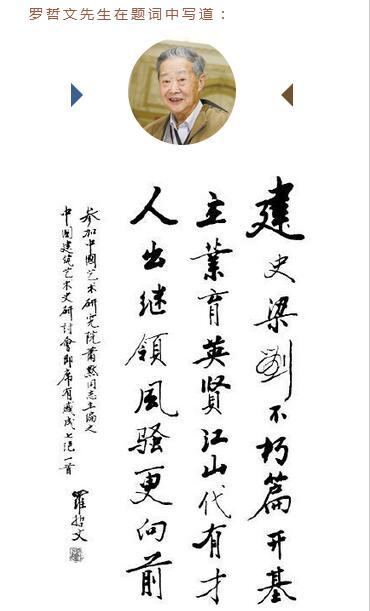 罗哲文先生在题词中写道：
建史梁劉不朽篇开基
主業育英贤江山代有才
人出继领风骚更向前
参加中國艺术研究院萧默同志主编之
中国建筑艺术史研討會即席有感成七绝一首
羅哲文